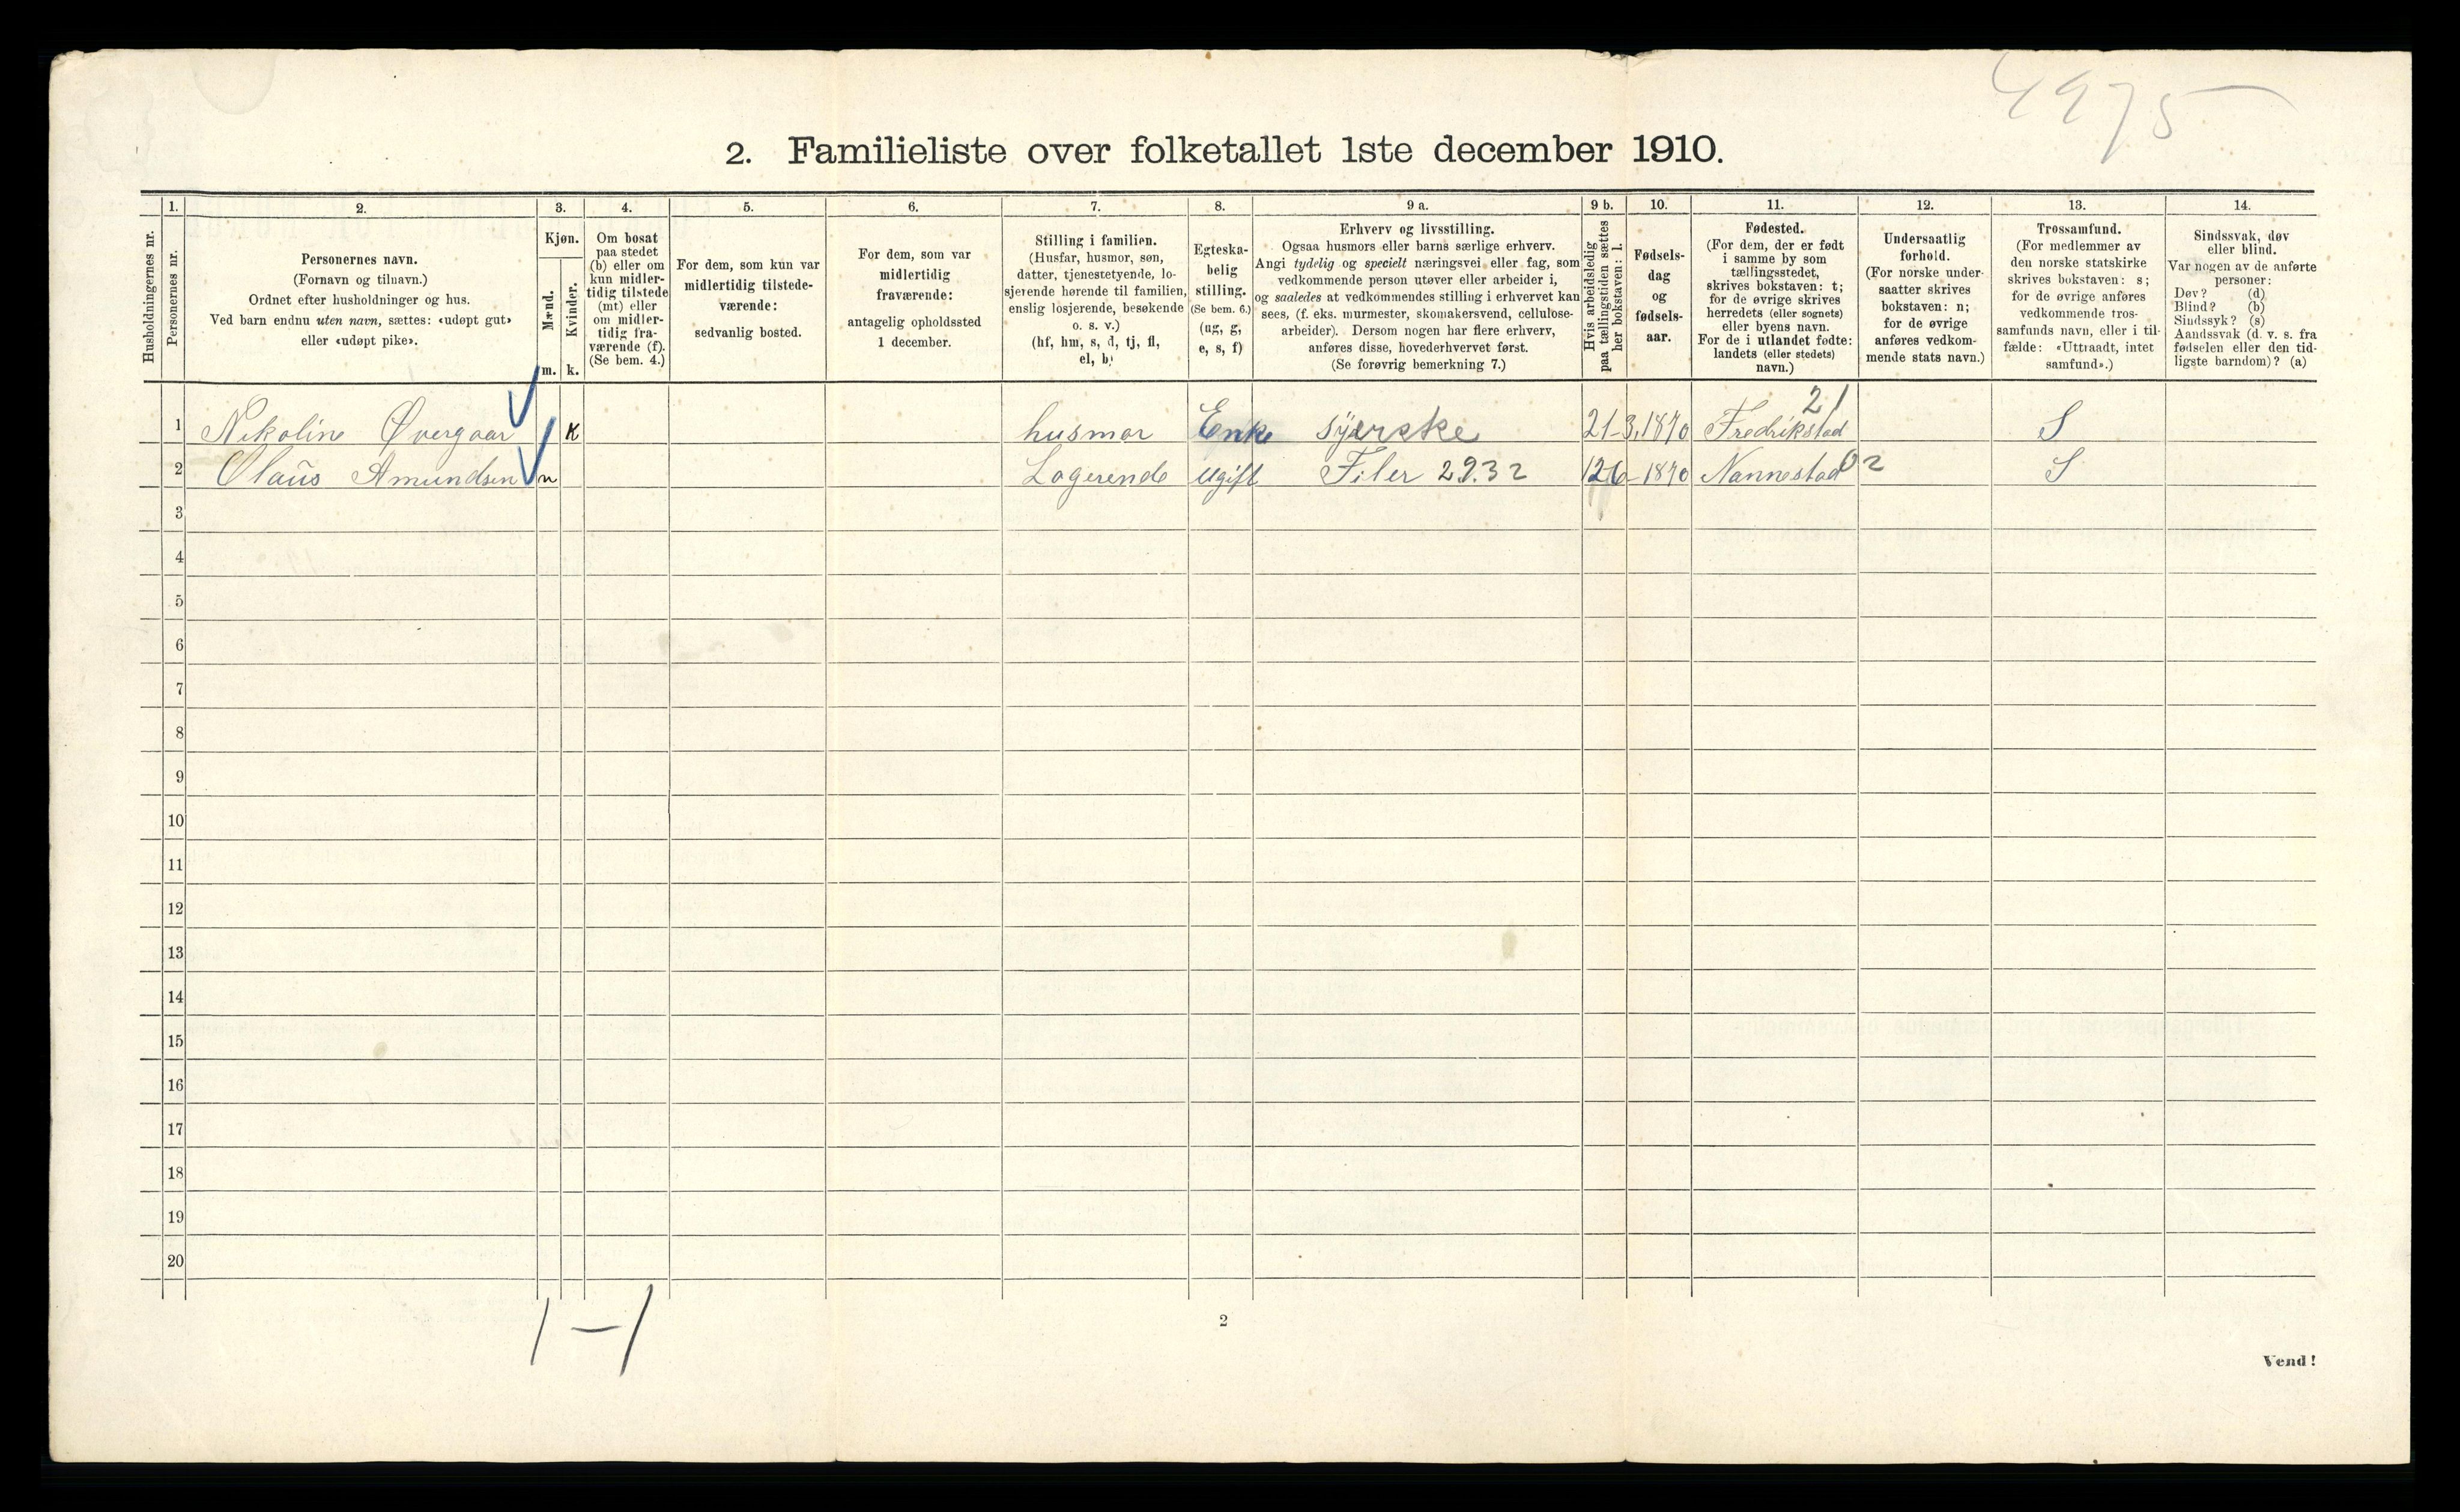 4975
2. Familieliste over folketallet 1ste december 1910.
Husholdningernes nr.
1.
Personernes nr.
2.
Personernes navn.
(Fornavn og tilnavn.)
Ordnet efter husholdninger og hus.
Ved barn endnu uten navn, sættes: «udøpt gut»
eller «udøpt pike».
3.
Kjøn.
Mænd.
m.
Kvinder.
k.
4.
Om bosat
paa stedet
(b) eller om
kun midler-
tidig tilstede
(mt) eller
om midler-
tidig fra-
værende (f).
(Se bem. 4.)
5.
For dem, som kun var
midlertidig tilstede-
værende:
sedvanlig bosted.
6.
For dem, som var
midlertidig
fraværende:
antagelig opholdssted
1 december.
7.
Stilling i familien.
(Husfar, husmor, søn,
datter, tjenestetyende, lo-
sjerende hørende til familien,
enslig losjerende, besøkende
o. s. v.)
(hf, hm, s, d, tj, fl,
el, b)
8.
Egteska-
belig
stilling.
(Se bem. 6.)
(ug, g,
e, s, f)
9 a.
Erhverv og livsstilling.
Ogsaa husmors eller barns særlige erhverv.
Angi tydelig og specielt næringsvei eller fag, som
vedkommende person utøver eller arbeider i,
og saaledes at vedkommendes stilling i erhvervet kan
sees, (f. eks. murmester, skomakersvend, cellulose-
arbeider). Dersom nogen har flere erhverv,
anføres disse, hovederhvervet først.
(Se forøvrig bemerkning 7.)
9 b.
Hvis arbeidsledig
paa tællingstiden sættes
her bokstaven: l.
10.
Fødsels-
dag
og
fødsels-
aar.
11.
Fødested.
(For dem, der er født
i samme by som
tællingsstedet,
skrives bokstaven: t;
for de øvrige skrives
herredets (eller sognets)
eller byens navn.
For de i utlandet fødte:
landets (eller stedets)
navn.)
12.
Undersaatlig
forhold.
(For norske under-
saatter skrives
bokstaven: n;
for de øvrige
anføres vedkom-
mende stats navn.)
13.
Trossamfund.
(For medlemmer av
den norske statskirke
skrives bokstaven: s;
for de øvrige anføres
vedkommende tros-
samfunds navn, eller i til-
fælde: «Uttraadt, intet
samfund».)
14.
Sindssvak, døv
eller blind.
Var nogen av de anførte
personer:
Døv? (d)
Blind? (b)
Sindssyk? (s)
Aandssvak (d. v. s. fra
fødselen eller den tid-
ligste barndom)? (a)
1 Nikoline Øvergaar K husmor Enke syerske 21-3,1870 Fredrikstad 21 S
2 Olaus Amundsen m Logerende Ugift Filer 2932 12 6-1870 Nannestad 02 S
3
4
5
6
7
8
9
10
11
12
13
14
15
16
17
18
19
20
1-1
2
Vend!